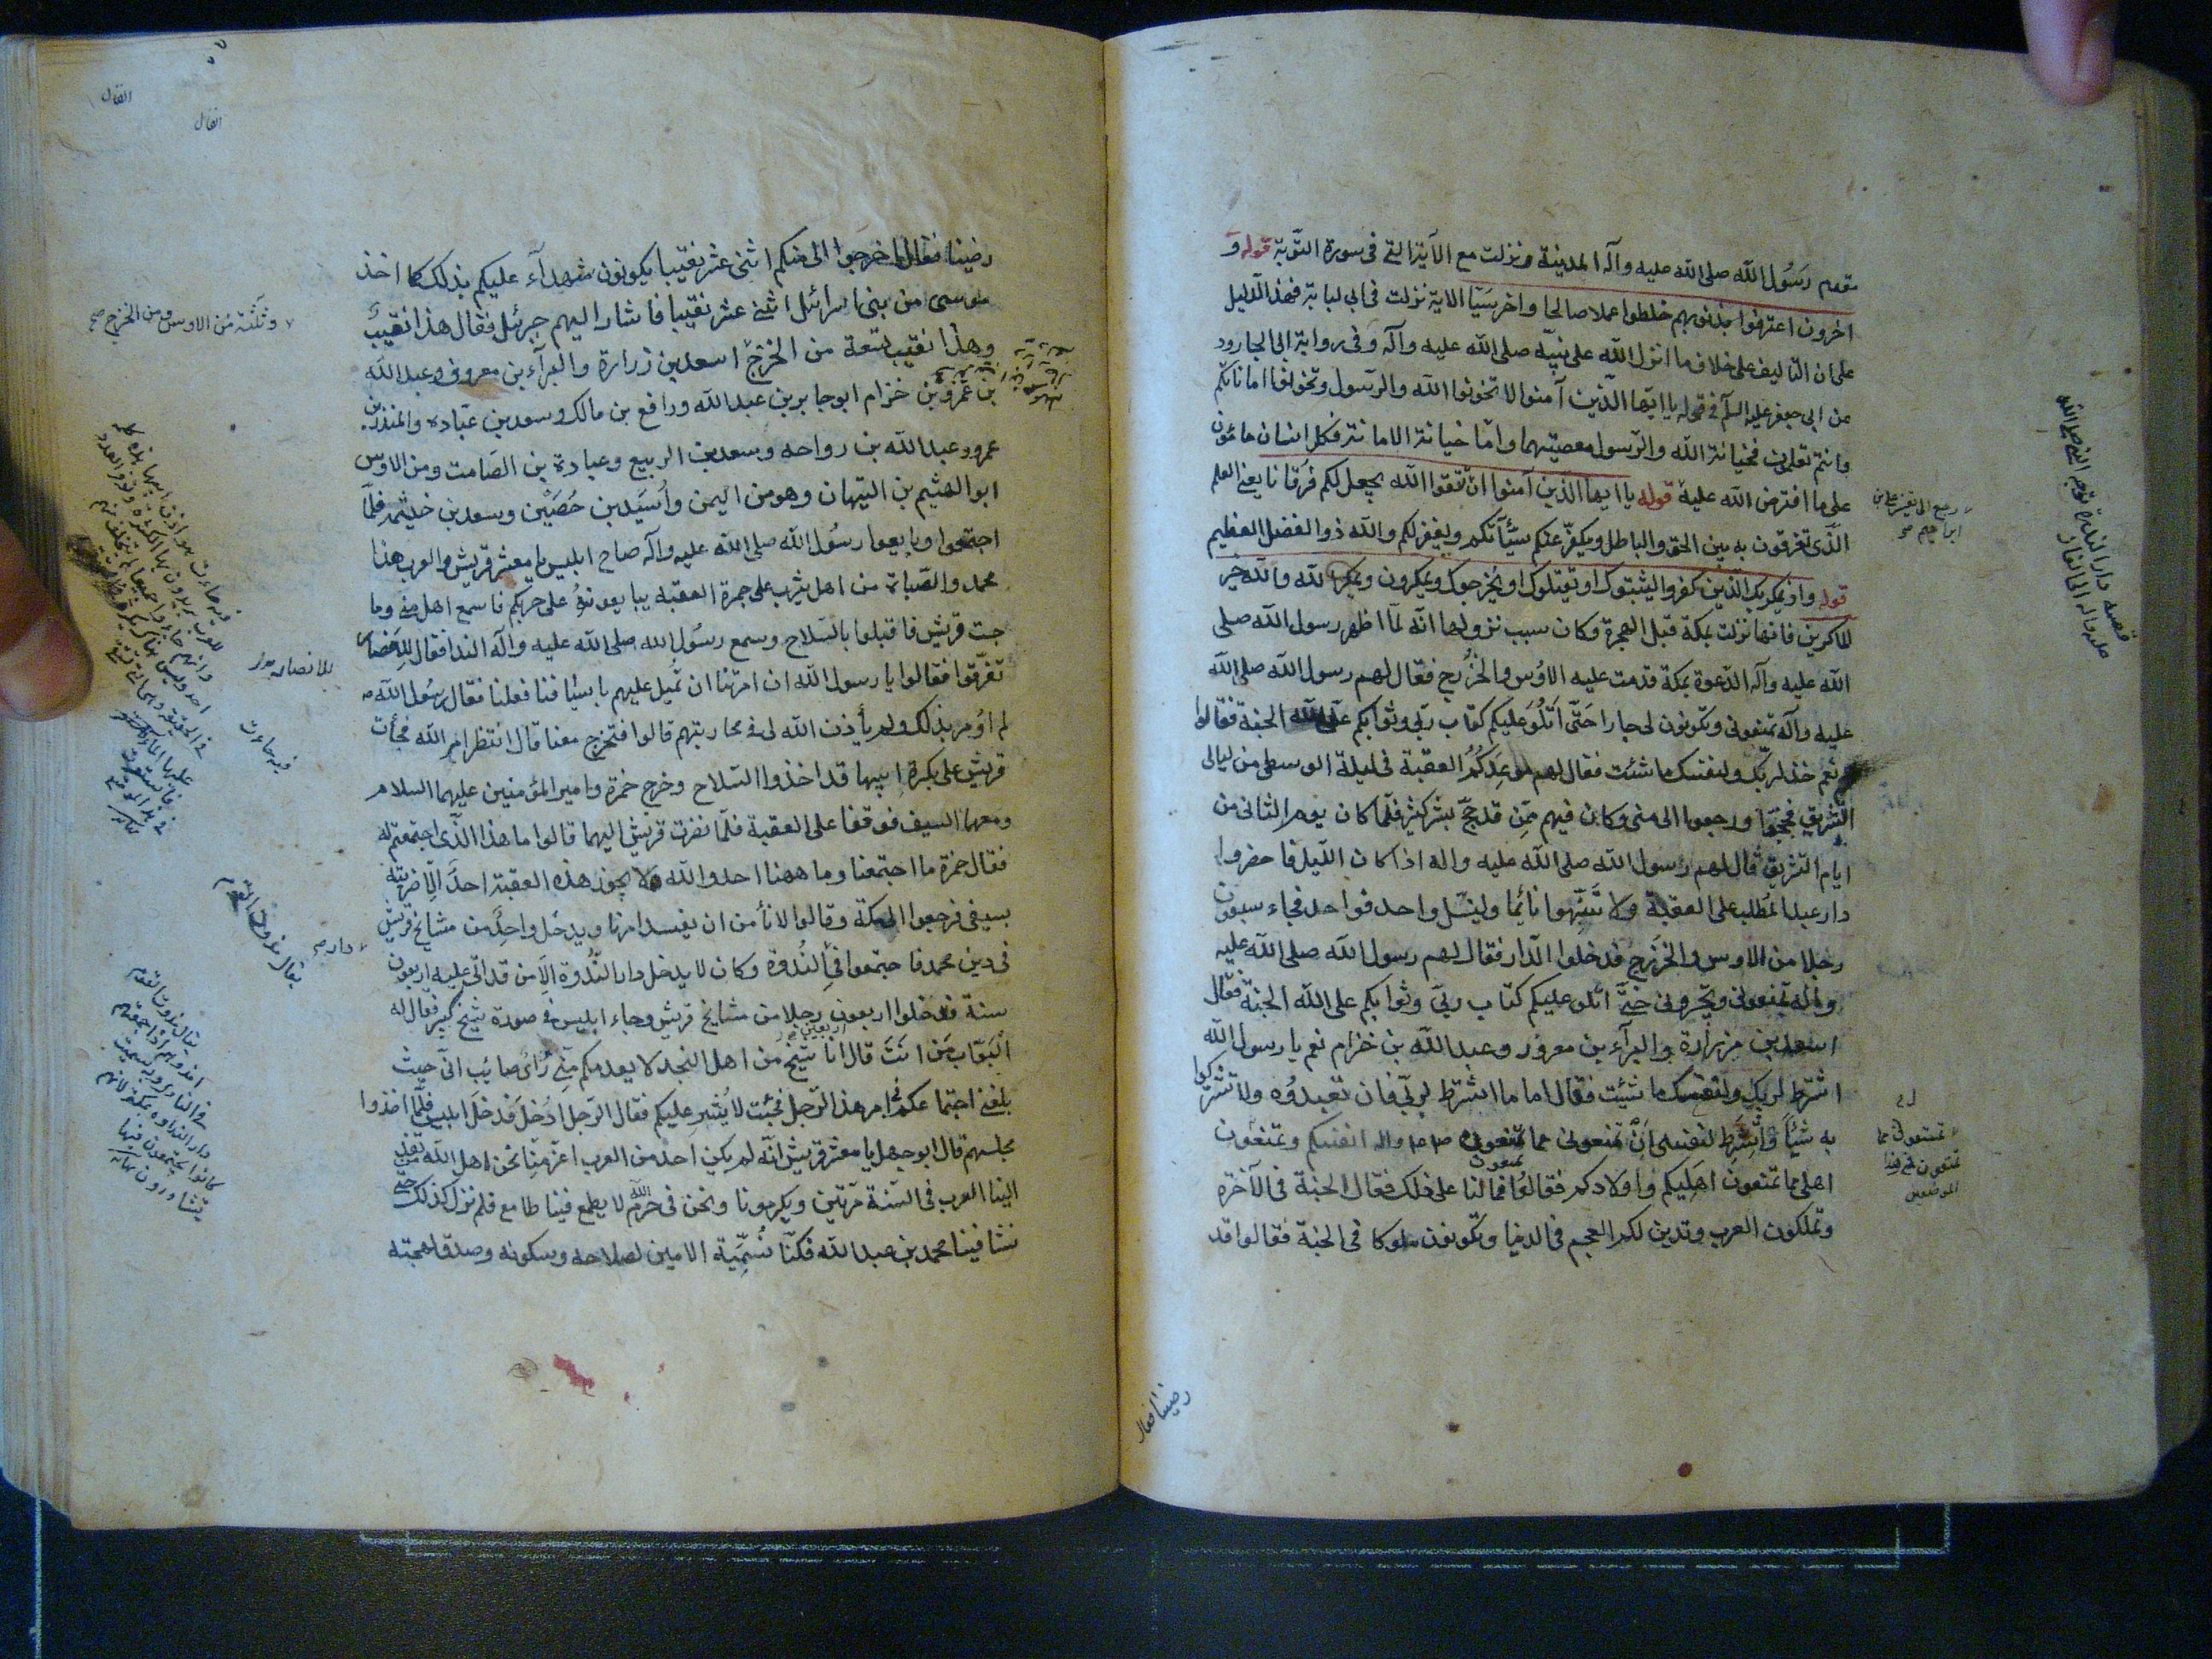 مقدم رسول الله صلى الله عليه وآله المدينة ونزلت مع الآية التي في سورة التوبة قوله و
اخرون اعترفوا بذنوبهم خلطوا عملا صالحا واخر سيئا الاية نزلت في ابي لبابة فهذا الدليل
على ان التأليف على خلاف ما انزل الله على نبيه صلى الله عليه وآله وفي رواية ابي الجارود
عن ابي جعفر عليه السلم في قوله يا ايها الذين آمنوا لا تخونوا الله والرسول وتخونوا اماناتكم
وانتم تعلمون فخيانة الله والرسول معصيتهما واما خيانة الامانة فكل انسان مأمون
على ما افترض الله عليه قوله يا ايها الذين آمنوا ان تتقوا الله يجعل لكم فرقانا يعني العلم
الذي تفرقون به بين الحق والباطل ويكفر عنكم سيئاتكم ويغفر لكم والله ذو الفضل العظيم
قوله واذ يمكر بك الذين كفروا ليثبتوك او يقتلوك او يخرجوك ويمكرون ويمكر الله والله خير
الماكرين فانها نزلت بمكة قبل الهجرة وكان سبب نزولها انه لما اظهر رسول الله صلى
الله عليه وآله الدعوة بمكة قدمت عليه الاوس والخزرج فقال لهم رسول الله صلى الله
عليه وآله تمنعوني وتكونون لي جارا حتى اتلو عليكم كتاب ربي وثوابكم على الله الجنة فقالوا
نعم خذ لربك ولنفسك ما شئت فقال لهم موعدكم العقبة في ليلة الوسطى من ليالي
التشريق فحجوا ورجعوا الى منى وكان فيهم ممن قد حج بشر كثير فلما كان يوم الثاني من
ايام التشريق قال لهم رسول الله صلى الله عليه واله اذا كان الليل فاحضروا
دار عبد المطلب على العقبة ولا تنبهوا نائما ولينسل واحد فواحد فجاء سبعون
رجلا من الاوس والخزرج فدخلوا الدار فقال لهم رسول الله صلى الله عليه
وآله تمنعوني وتجيروني حتى اتلو عليكم كتاب ربي وثوابكم على الله الجنة فقال
اسعد بن زرارة والبرآء بن معرور وعبد الله بن خزام نعم يا رسول الله
اشترط لربك ولنفسك ما شئت فقال اما ما اشترط لربي فان تعبدوه ولا تشركوا
به شيئا واشترط لنفسي ان تمنعوني مما تمنعون انفسكم وتمنعون
اهلي مما تمنعون اهليكم واولادكم فقالوا فما لنا على ذلك فقال الجنة في الآخرة
وتملكون العرب وتدين لكم العجم في الدنيا وتكونون ملوكا في الجنة فقالوا قد
رضينا فقال
رضينا فقال اخرجوا الي منكم اثني عشر نقيبا يكونون شهدآء عليكم بذلك كما اخذ
موسى من بني اسرائيل اثني عشر نقيبا فاشار اليهم جبرئيل فقال هذا نقيب
وهذا نقيب تسعة من الخزرج اسعد بن زرارة والبرآء بن معرور وعبد الله
بن عمرو بن خزام ابو جابر بن عبد الله ورافع بن مالك وسعد بن عبادة والمنذر بن
عمرو وعبد الله بن رواحه وسعد بن الربيع وعبادة بن الصامت ومن الاوس
ابو الهثيم بن التيهان وهو من اليمن واسيد بن حصين وسعد بن خيثمه فلما
اجتمعوا وبايعوا رسول الله صلى الله عليه وآله صاح ابليس يا معشر قريش والعرب هذا
محمد والصباة من اهل يثرب على جمرة العقبة يبايعونه على حربكم فاسمع اهل منى وما
جت قريش فاقبلوا بالسلاح وسمع رسول الله صلى الله عليه وآله الندا فقال للانصار
تفرقوا فقالوا يا رسول الله ان امرتنا ان نميل عليهم باسيافنا فعلنا فقال رسول الله ص
لم اومر بذلك ولم يأذن الله لي في محاربتهم قالوا فتخرج معنا قال انتظر امر الله فجأت
قريش على بكرة ابيها قد اخذوا السلاح وخرج حمزة وامير المؤمنين عليهما السلام
ومعهما السيف فوقفا على العقبة فلما نظرت قريش اليهما قالوا ما هذا الذي اجتمعتم له
فقال حمزة ما اجتمعنا وما ههنا احد والله ولا يجوز هذه العقبة احد الا ضربته
بسيفي فرجعوا الى مكة وقالوا لا نأمن ان يفسد امرنا ويدخل واحد من مشايخ قريش
في دين محمد فاجتمعوا في الندوة وكان لا يدخل دار الندوة الا من قد اتى عليه اربعون
سنة فدخلوا اربعون رجلا من مشايخ قريش وجاء ابليس في صورة شيخ كبير فقال له
البواب من انت قال انا شيخ من اهل النجد لا يعدمكم مني رأى صائب اني حيث
بلغني اجتماعكم في امر هذا الرجل فجئت لاشير عليكم فقال الرجل ادخل فدخل ابليس فلما اخذوا
مجلسهم قال ابو جهل يا معشر قريش انه لم يكن احد من العرب اعز منا نحن اهل الله تفد
الينا العرب في السنة مرتين ويكرمونا ونحن في حرم الله لا يطمع فينا طامع فلم نزل كذلك حتى
نشا فينا محمد بن عبد الله فكنا نسميه الامين لصلاحه وسكونه وصدق لهجته
وثلثة من الاوس ومن الخزرج صح
للانصار